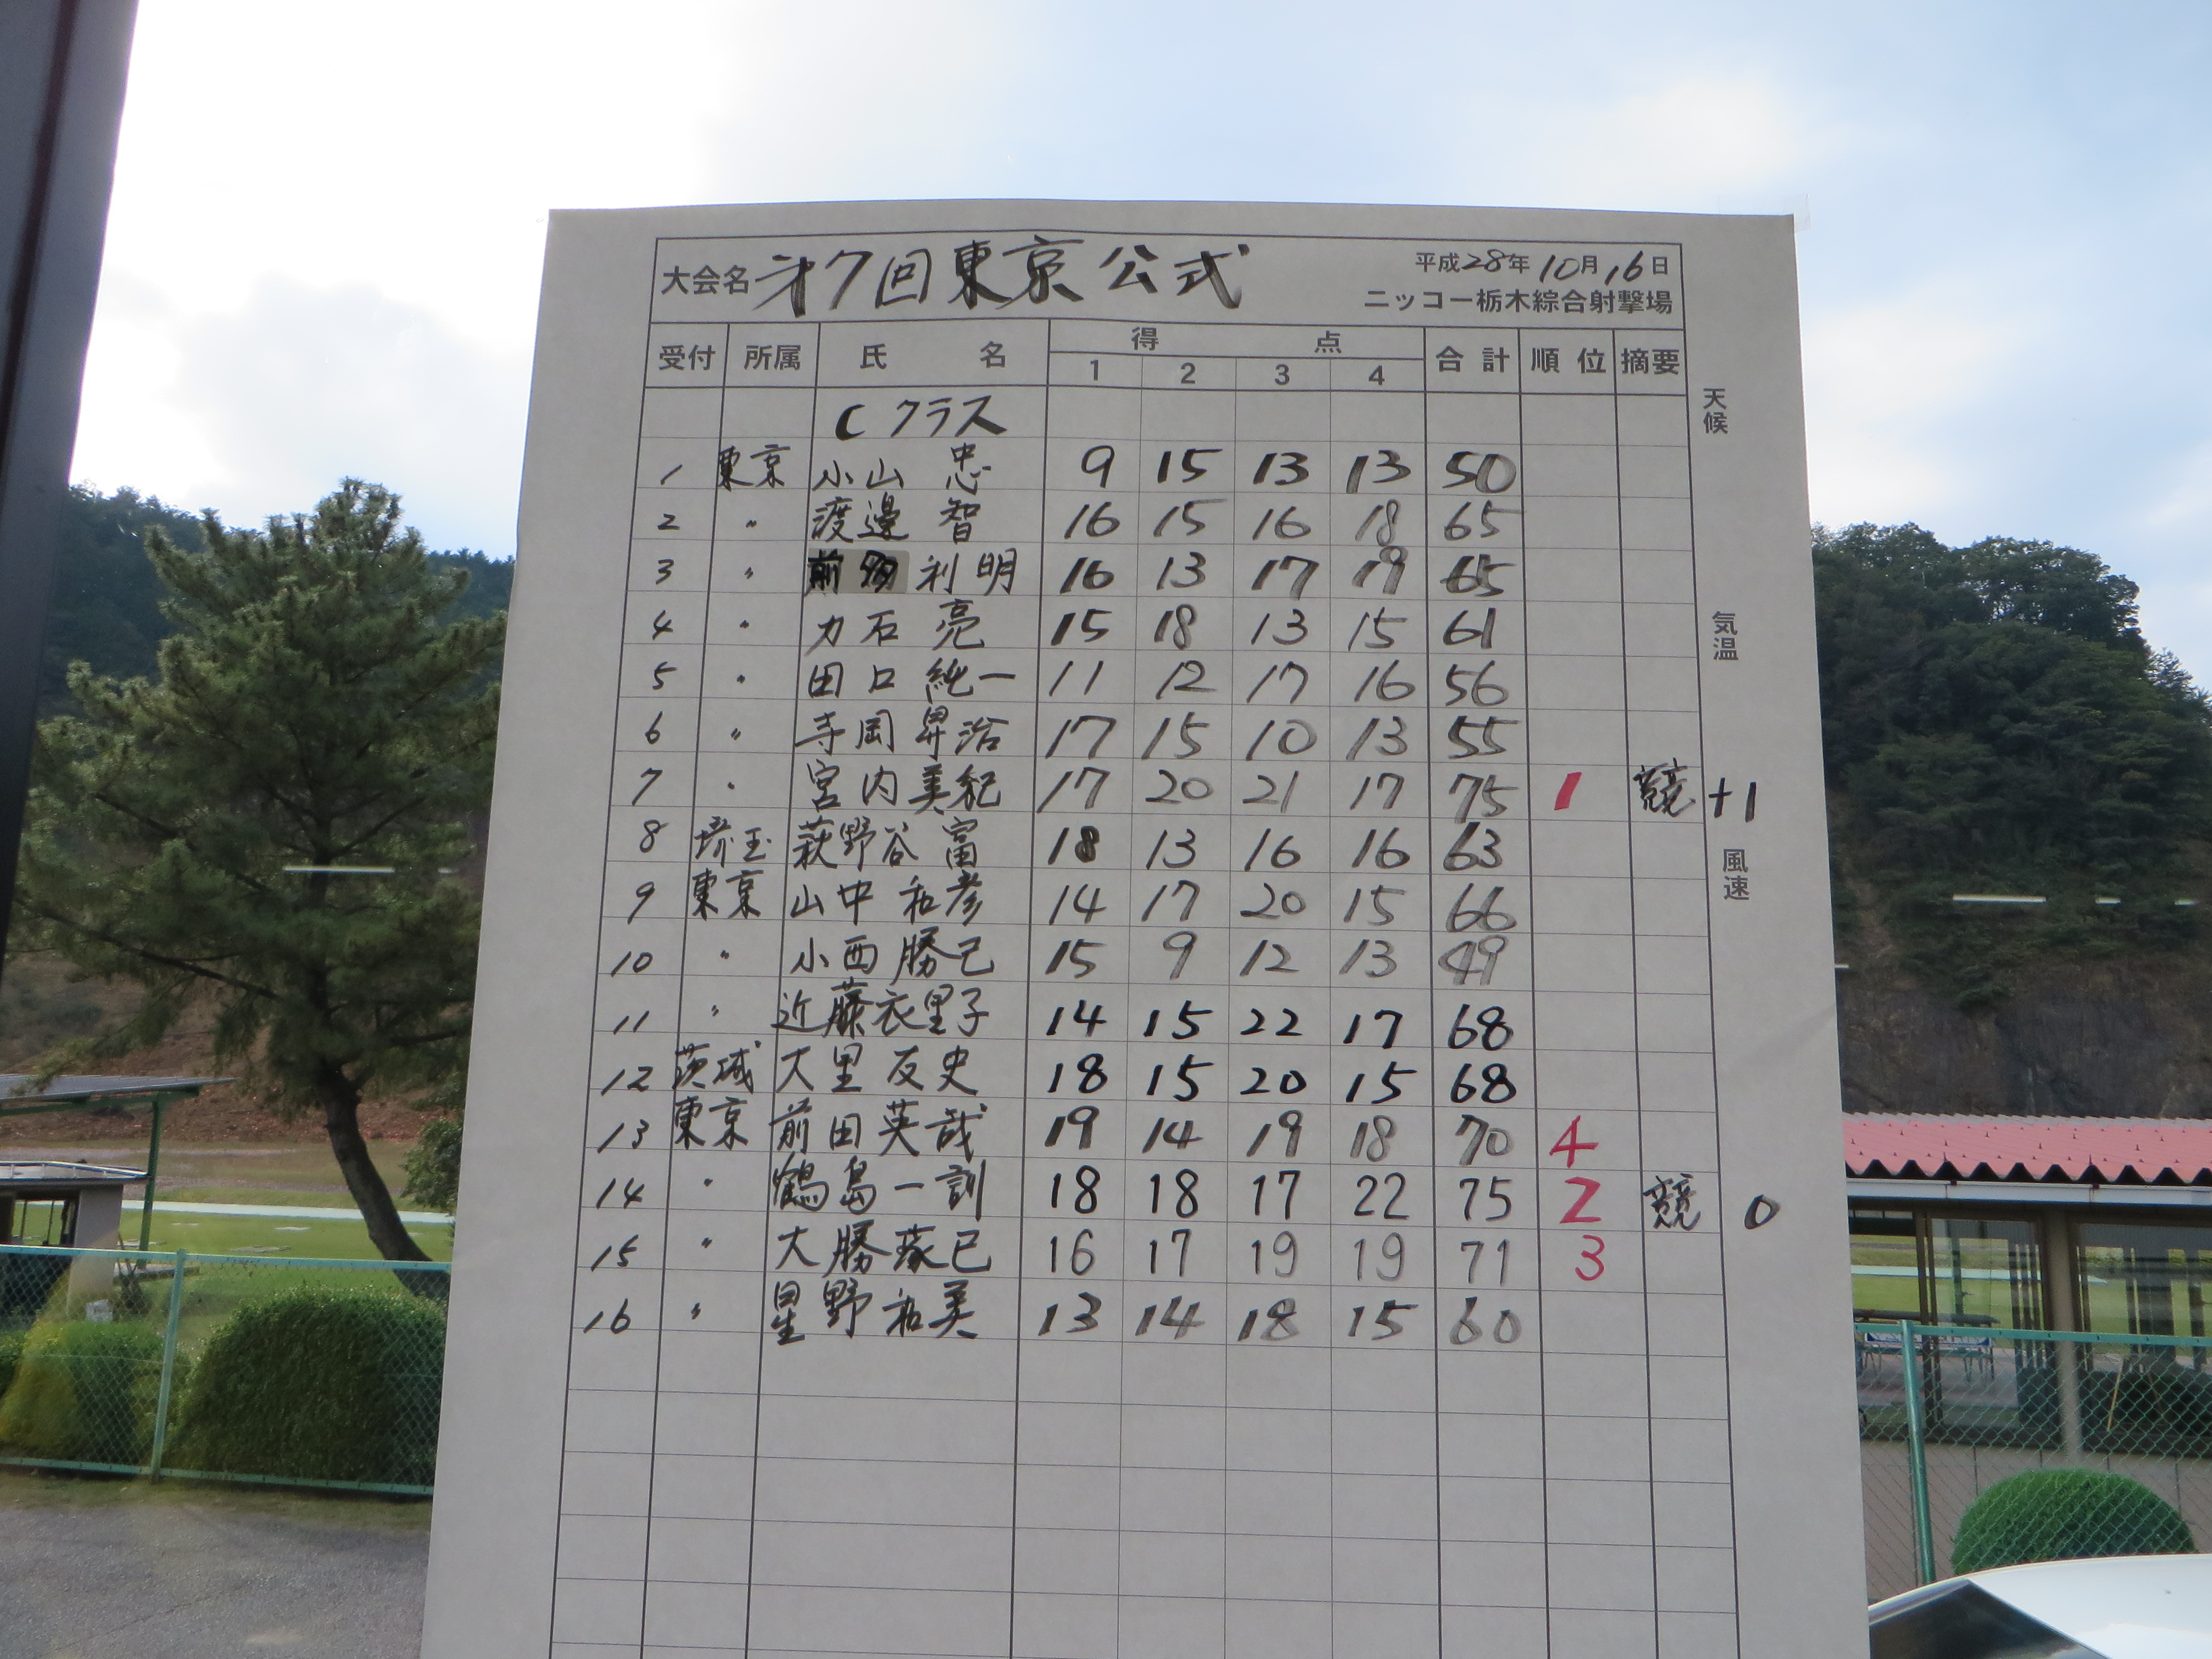 大会名 才7回東京公式 平成28年10月16日
ニッコー栃木綜合射撃場
受付 所属 氏名 得点 合計 順位 摘要
1 2 3 4
天候
Cクラス
1 東京 小山 忠 9 15 13 13 50
2 〃 渡邊 智 16 15 16 18 65
3 〃 前多 利明 16 13 17 19 65
気温
4 〃 力石 亮 15 18 13 15 61
5 〃 田口 純一 11 12 17 16 56
6 〃 寺岡 昇治 17 15 10 13 55
7 〃 宮内 美紀 17 20 21 17 75 1 競 +1
風速
8 埼玉 萩野谷 富 18 13 16 16 63
9 東京 山中 和彦 14 17 20 15 66
10 〃 小西 勝己 15 9 12 13 49
11 〃 近藤衣里子 14 15 22 17 68
12 茨城 大里 友史 18 15 20 15 68
13 東京 前田英哉 19 14 19 18 70 4
14 〃 鶴島一訓 18 18 17 22 75 2 競 0
15 〃 大勝 己 16 17 19 19 71 3
16 〃 星野和美 13 14 18 15 60